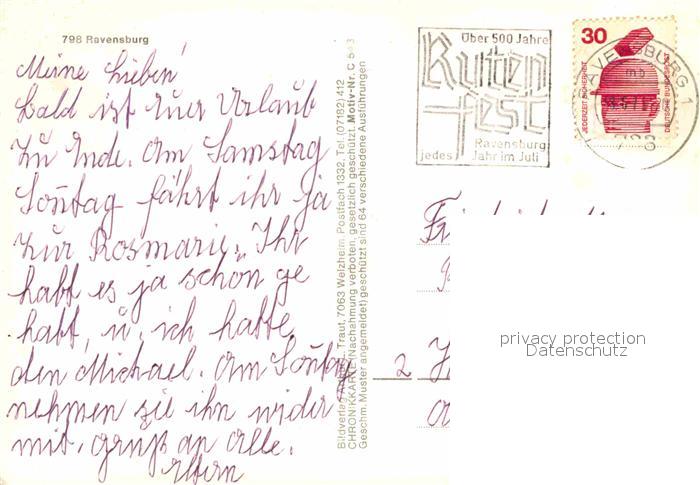 798 Ravensburg
Meine Lieben!
Bald ist euer Urlaub
zu Ende. Am Samstag
Sonntag fährt ihr ja
zur Rosmarie. Ihr
habt es ja schön ge
habt, u. ich hatte
den Michael. Am Sonntag
nehmen sie ihn wider
mit. Gruß an Alle.
Eltern
Traut, 7063 Welzheim, Postfach 1332, Tel. (07182) 412
CHRONIKKARTE (Nachahmung verboten, gesetzlich geschützt. Motiv-Nr. C
Geschm. Muster angemeldet) geschützt sind 64 verschiedene Ausführungen
Über 500 Jahre
Ruten
fest
Ravensburg
jedes Jahr im Juli
30
JEDERZEIT SICHERHEIT
DEUTSCHE BUNDESPOST
RAVENSBURG 1
mb
798
2
privacy protection
Datenschutz